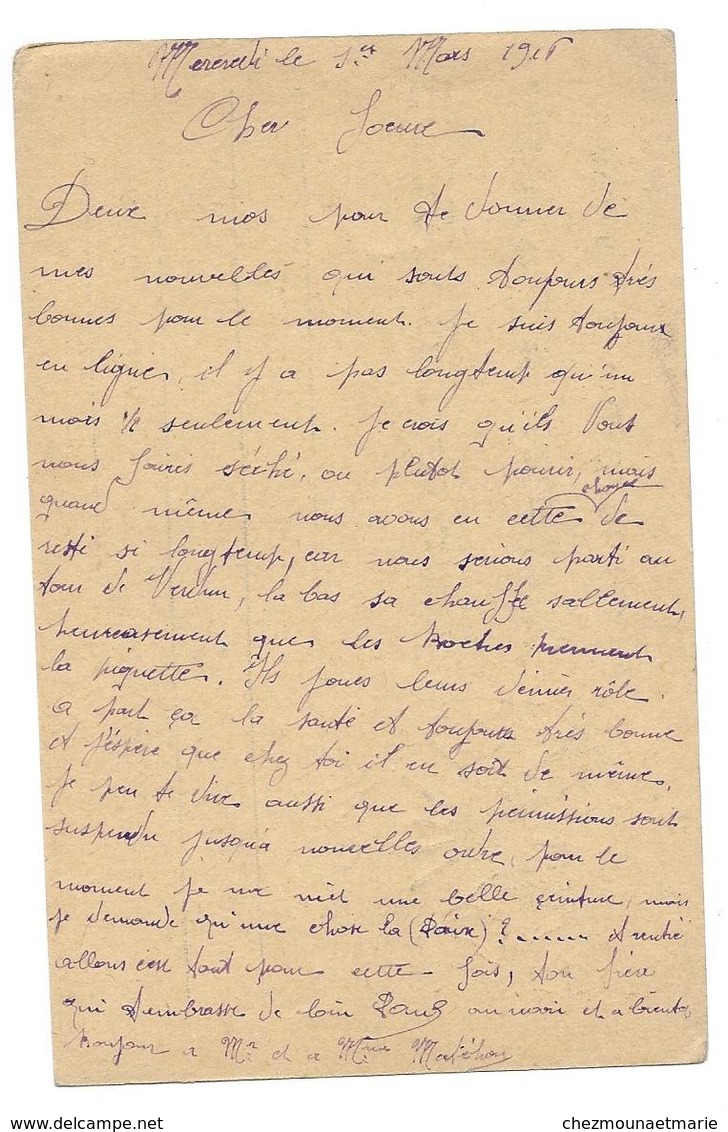 Mercredi le 1er Mars 1916
Cher Soeure
Deux mos pour te donner de
mes nouvelles qui sonts toujours très
bonnes pour le moment. Je suis toujours
en lignes, il y a pas longtemp qu'un
mois 1/2 seulement. Je crois qu'ils vont
nous faires séché, ou plutot pourir, mais
quand même nous avons eu cette chance de
resté si longtemp, car nous serions parti au
tour de Verdun, la bas sa chauffe sallement,
heureusement que les Boches prennent
la piquette. Ils joues leurs dernier rôle.
a part ça la santé et toujours très bonne
et j'éspère que chez toi il en soit de même.
Je peu te dire aussi que les permissions sont
suspendu jusqu'a nouvelles ordre, pour le
moment je me met une belle ceinture, mais
je demande qu'une chose la (Paix) ?...... et rentré
allons c'est tout pour cette fois, ton frère
qui t'embrasse de loin Paul au revoir et a bientot
Bonjour a Mr et a Mme
chezmounaetmarie.delcampe.net